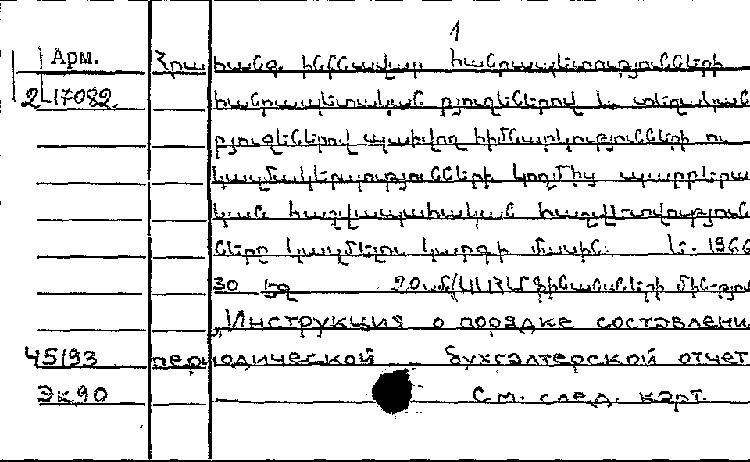 1
Арм. Հրահանգ ինքնավար հանրապետությունների
2-17082. հանրապետական բյուջեներով և տեղական
բյուջեներով պահվող հիմնարկությունների ու
կազմակերպությունների կողմից պարբերա
կան հաշվապահական հաշվետվություն
ները կազմելու կարգի մասին: Ե. 1966
30 էջ
„Инструкция о порядке составлени
45193 периодической бухгалтерской отчет
Эк90 См. след. карт.